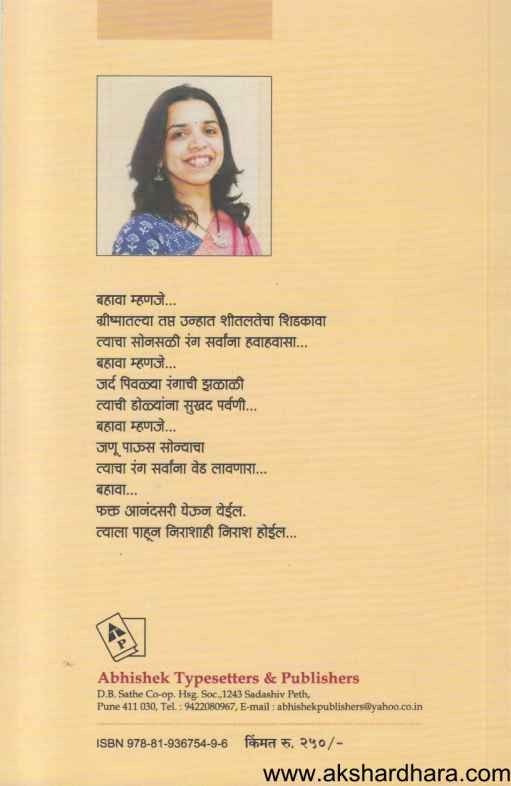 बहावा म्हणजे...
ग्रीष्मातल्या तप्त उन्हात शीतलतेचा शिडकावा
त्याचा सोनसळी रंग सर्वांना हवाहवासा...
बहावा म्हणजे...
जर्द पिवळ्या रंगाची झळाळी
त्याची डोळ्यांना सुखद पर्वणी...
बहावा म्हणजे...
जणू पाऊस सोन्याचा
त्याचा रंग सर्वांना वेड लावणारा...
बहावा...
फक्त आनंदसरी घेऊन येईल.
त्याला पाहून निराशाही निराश होईल...
A
T
P
Abhishek Typesetters & Publishers
D.B. Sathe Co-op. Hsg. Soc.,1243 Sadashiv Peth,
Pune 411 030, Tel. : 9422080967, E-mail : abhishekpublishers@yahoo.co.in
ISBN 978-81-936754-9-6 किंमत रु. २५०/-
www.akshardhara.com